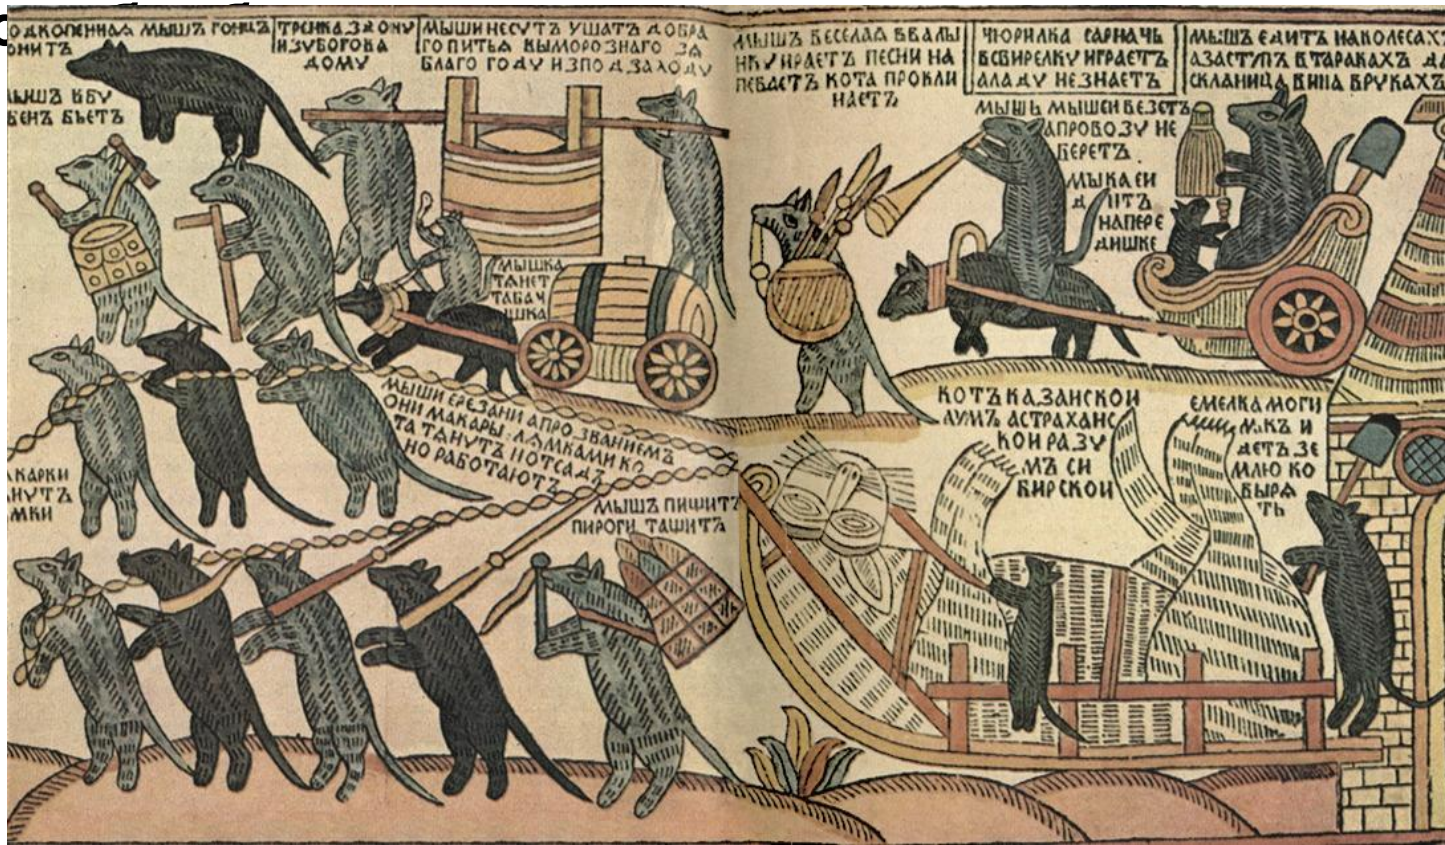 ОДКОПЕННАЯ МЫШЪ ГОНЕЦЪ
ОНИТЪ
МЫШЪ ВБУ
БЕНЪ БЬЕТЪ
ТРЕНКА ЗДОНУ
ИЗУБОГОВА
ДОМУ
МЫШИ НЕСУТЪ УШАТЪ ДОБРА
ГО ПИТЬЯ ВЫМОРОЗНАГО ЗА
БЛАГО ГОДУ ИЗПОДЗАХОДУ
МЫШЪ ВЕСЕЛАЯ ВВАЛЫ
НКУ ИРАЕТЪ ПЕСНИ НА
ПЕВАЕТЪ КОТА ПРОКЛИ
НАЕТЪ
ЧЮРИЛКА САРНАЧЬ
ВСВИРЕЛКУ ИГРАЕТЪ
АЛАДУ НЕЗНАЕТЪ
МЫШЪ ЕДИТЪ НАКОЛЕСАХЪ
АЗАСТУПЪ ВТАРАКАХЪ ДА
СКЛАНИЦА ВИНА ВРУКАХЪ
МЫШЬ МЫШЕИ ВЕЗЕТЪ
АПРОВОЗУ НЕ
БЕРЕТЪ
МЫКА СИ
ДИТЪ
НАПЕРЕ
ДИШКЕ
МЫШКА
ТЯНЕТ
ТАБАЧ
ИШКА
МЫШИ ЕРЕЗАНИ АПРОЗВАНИЕМЪ
ОНИ МАКАРЫ ЛЯМКАМИ КО
ТА ТЯНУТЪ ИОТСАДЪ
НО РАБОТАЮТЪ
АКАРКИ
ЯНУТЪ
ЯМКИ
МЫШЪ ПИЩИТЪ
ПИРОГИ ТАЩИТЪ
КОТЪ КАЗАНСКОИ
АУМЪ АСТРАХАНС
КОИ РАЗУ
МЪ СИ
БИРСКОИ
ЕМЕЛКА МОГИ
ЛЯКЪ И
ДЕТЪ ЗЕ
МЛЮ КО
ВЫРЯ
ТЬ